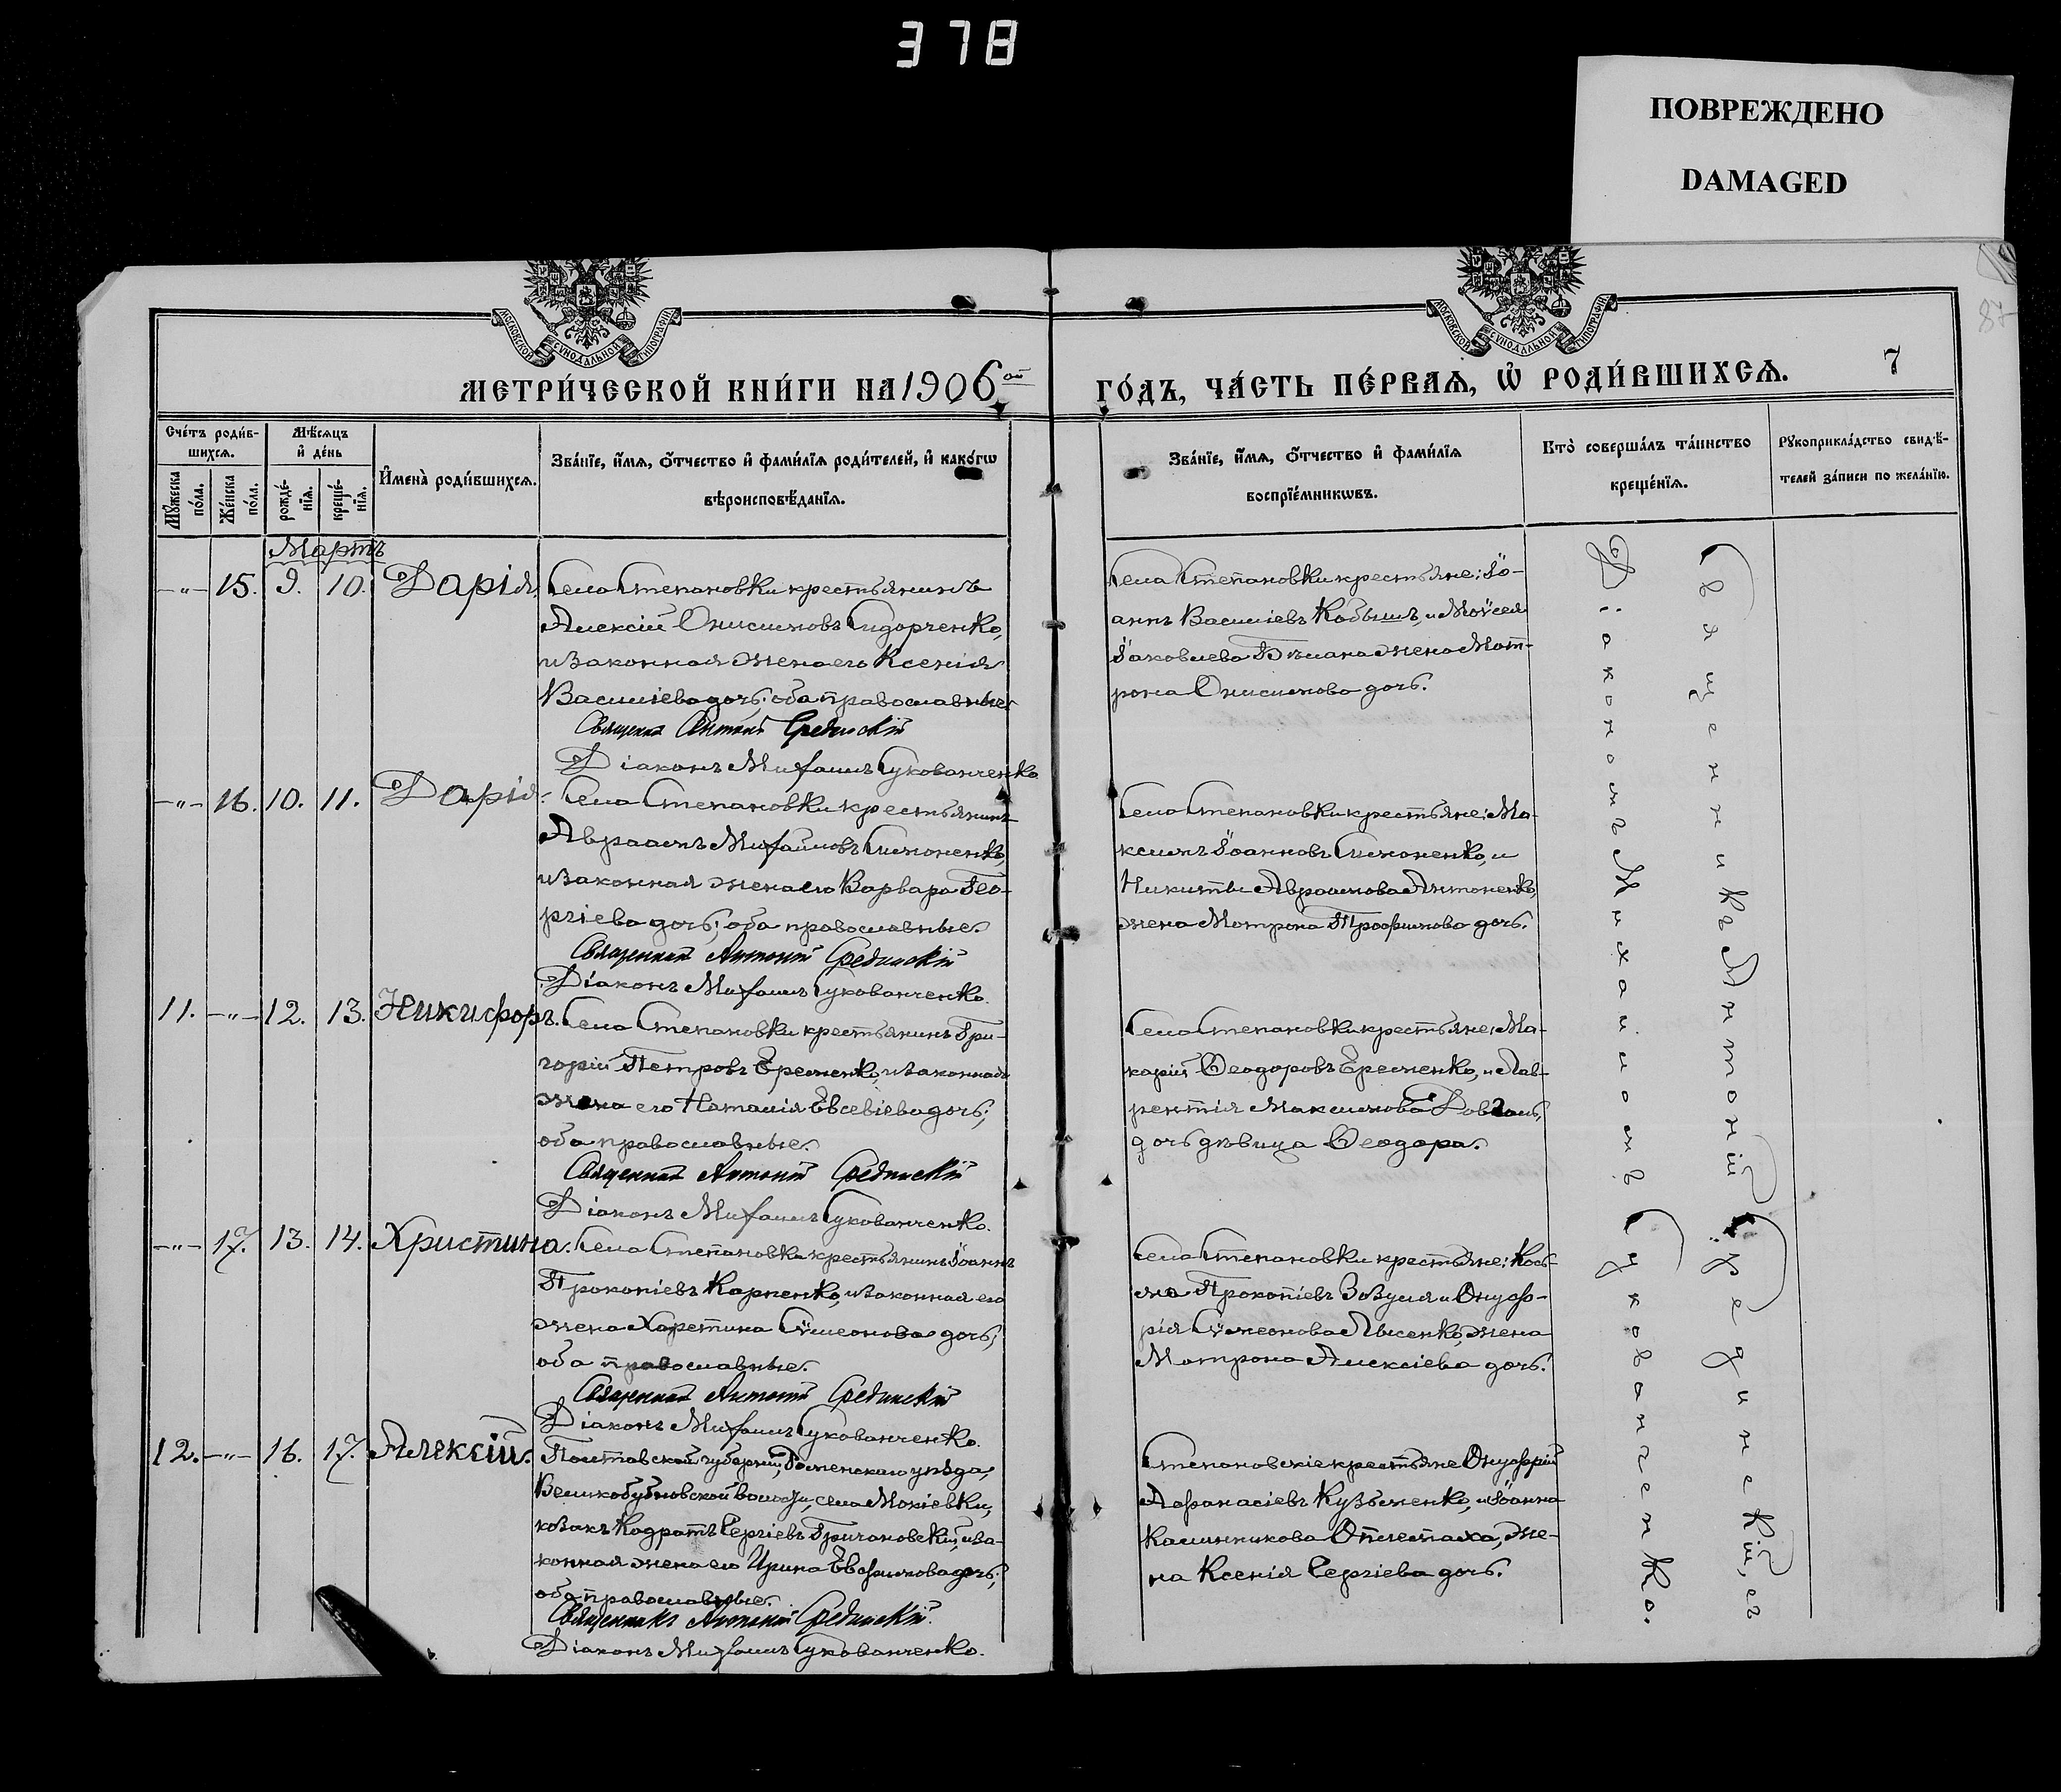 378
ПОВРЕЖДЕНО
DAMAGED
МОСКОВСКОЙ СѴНОДАЛЬНОЙ ТИПОГРАФІИ
МОСКОВСКОЙ СѴНОДАЛЬНОЙ ТИПОГРАФІИ
87
МЕТРИ́ЧЕСКОЙ КНИ́ГИ НА 1906 ой
ГО́ДЪ, ЧА́СТЬ ПЕ́РВАѦ, Ѡ҆ РОДИ́ВШИХСѦ. 7
Сче́тъ роди́в-
шихсѧ.
Мѣ́сѧцъ
и҆ де́нь
Мꙋ́жеска
по́ла.
Же́нска
по́ла.
рожде́-
нїѧ.
креще́-
нїѧ.
И҆мена̀ роди́вшихсѧ.
Зва́нїе, и҆́мѧ, ѻ҆́тчество и҆ фами́лїѧ роди́телей, и҆ како́гѡ
вѣроисповѣ́данїѧ.
Зва́нїе, и҆́мѧ, ѻ҆́тчество и҆ фами́лїѧ
воспрїе́мникѡвъ.
Кто̀ соверша́лъ та́инство
креще́нїѧ.
Рꙋкоприкла́дство свидѣ́-
телей за́писи по жела́нїю.
Мартъ
-"- 15. 9. 10. Дарія
Села Степановки крестьянинъ
Алексій Онисимовъ Сидорченко,
и законная жена его Ксенія
Василіева дочь; оба православные.
Священник Антоній Срединскій
Діаконъ Михаилъ Сукованченко
Села Степановки крестьяне: Іо-
аннъ Василіевъ Кобышъ, и Моѵсея
Іаковлева жена Мот-
рона Онисимова дочь.
-"- 16. 10. 11. Дарія.
Села Степановки крестьянинъ
Авраамъ Михаиловъ Симоненко,
и законная жена его Варвара Гео-
ргіева дочь; оба православные.
Священник Антоній Срединскій
Діаконъ Михаилъ Сукованченко.
Села Степановки крестьяне: Ма-
ксимъ Іоанновъ Симоненко, и
Никиты Авраамова Антоненко,
жена Матрона Трофимова дочь.
11. -"- 12. 13. Никифоръ.
Села Степановки крестьянинъ Гри-
горій Петровъ Еременко, и законная
жена его Наталія Евсевіева дочь;
оба православные.
Священник Антоній Срединскій
Діаконъ Михаилъ Сукованченко.
Села Степановки крестьяне: Ма-
карій Ѳеодоровъ Еременко, и Лав-
рентія Максимова Довгаль,
дочь дѣвица Ѳеодора.
-"- 17. 13. 14. Христина.
Села Степановки крестьянинъ Іоаннъ
Прокопіевъ Карпенко, и законная его
жена Харетина Сѵмеонова дочь;
оба православные.
Священник Антоній Срединскій
Діаконъ Михаилъ Сукованченко.
Села Степановки крестьяне: Кось-
ма Прокопіевъ Зозуля и Онуф-
рія Сѵмеонова Лысенко, жена
Матрона Алексіева дочь.
12. -"- 16. 17. Алексій.
Полтавской губерніи, Роменскаго уѣзда,
Великобубновской волости, села Мокіевки,
козакъ Кодратъ Сергіевъ Гричановскій, и за-
конная жена его Ирина Евфимова дочь;
оба православные.
Священникъ Антоній Срединскій.
Діаконъ Михаилъ Сукованченко.
Степановскіе крестьяне Онуфрій
Афанасіевъ Кузьменко, и Іоанна
Калинникова жe-
на Ксенія Сергіева дочь.
Священникъ Антоній Срединскій, съ
Діакономъ Михаиломъ Сукованченко.